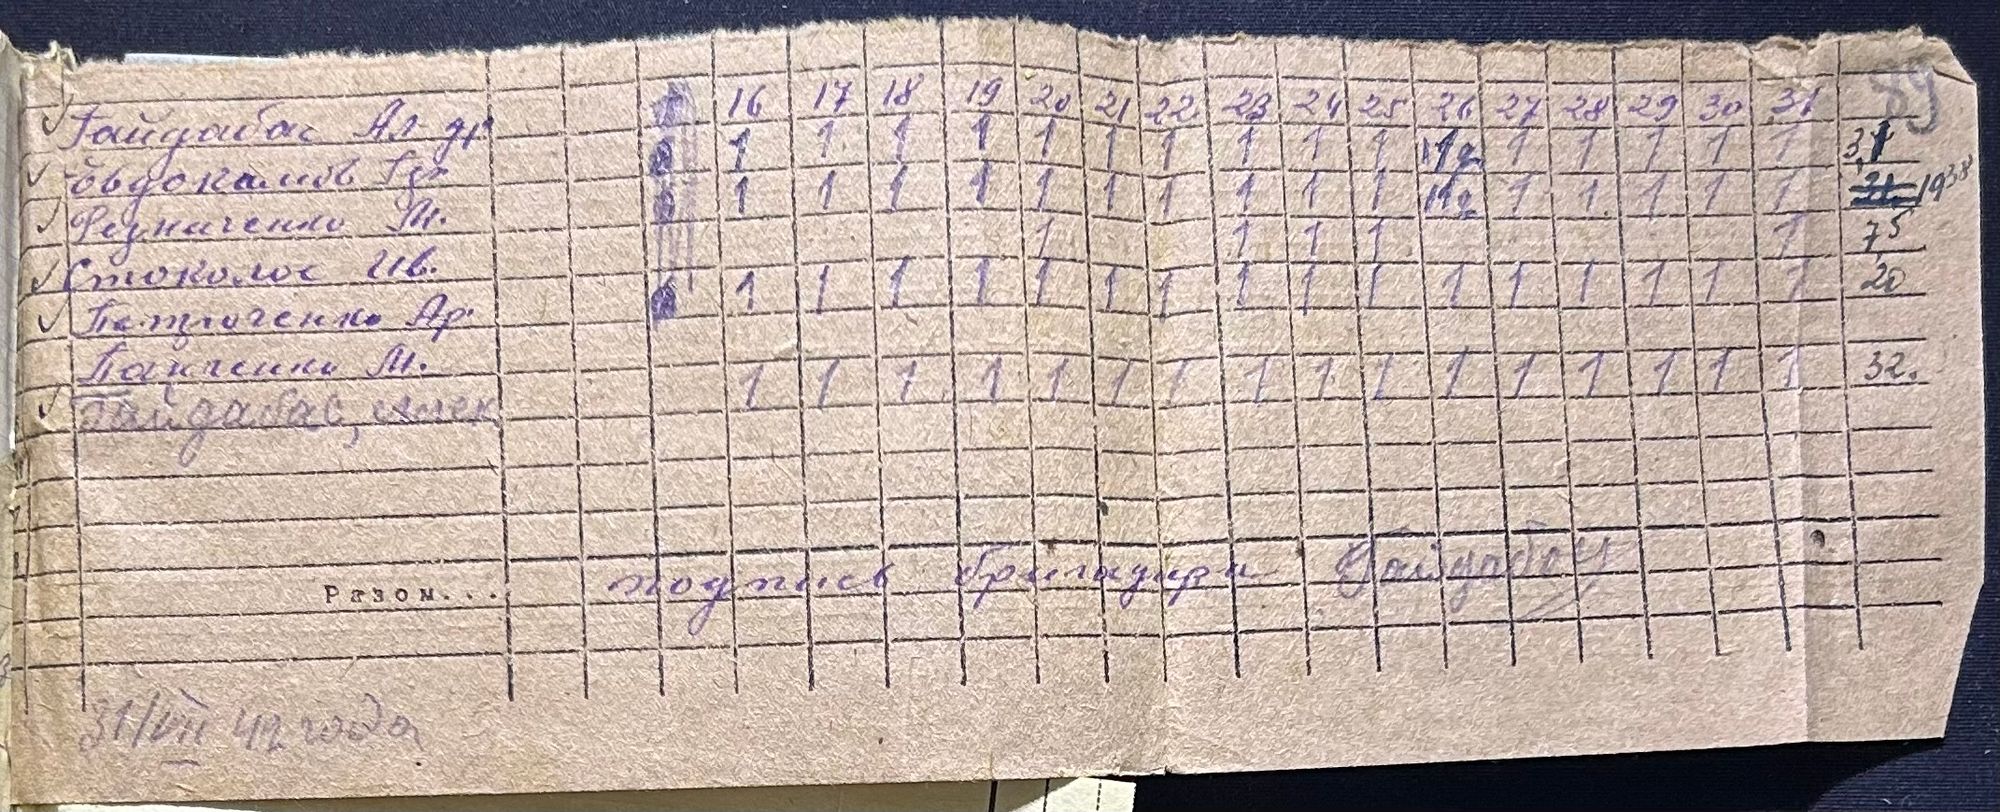 16 17 18 19 20 21 22 23 24 25 26 27 28 29 30 31 89
Гайдабас Ал-др 1 1 1 1 1 1 1 1 1 1 1 1 1 1 1 31
Овдокамов 1 1 1 1 1 1 1 1 1 1 1 1 1 1 1 1938
М. 1 1 1 1 1 7,5
Стоколос Ив. 1 1 1 1 1 1 1 1 1 1 1 1 1 1 1 1 20
Петроченко Ар.
Панченко М. 1 1 1 1 1 1 1 1 1 1 1 1 1 1 1 1 32.
Гайдабас, Алек
Разом... подпись бригадира Гайдабас
31/VII 42 года